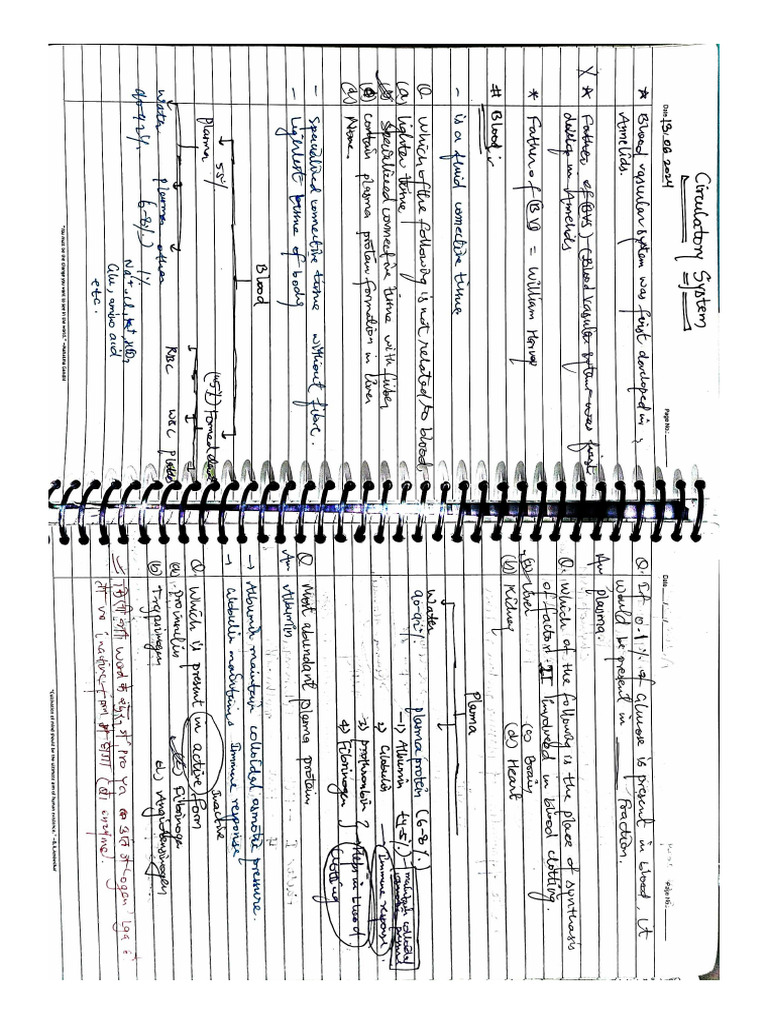 Circulatory System
Date 13.08.2024
Page No:
* Blood vascular system was first developed in,
Annelids.
X * Father of (BVS) (Blood vascular system was first
in Annelids
* Father of (BVS) = William Harvey
# Blood :-
- is a fluid connective tissue
Q. Which of the following is not related to blood
(a) lighter tissue
(b) specialized connective tissue with fiber
(c) contain plasma protein formation in liver
(d) None.
- Specialized connective tissue without fibre.
- Lightest tissue of body
Blood
55%
Plasma
(45%) Formed
Water
90-92%
plasma
6-8%
other
1%
Na+, Cl,
Glu, amino acid
etc.
RBC WBC
"You must be the change you want to see in the world." -Mahatma Gandhi
Date
Page No:
Q. If 0.1% of Glucose is present in blood, it
would be present in ____ fraction.
An plasma.
Q. Which of the following is the place of synthesis
of factor II involved in blood clotting.
(a) Liver (c) Brain
(b) Kidney (d) Heart
Plasma
Water
90-92%
plasma protein (6-8%)
1) Albumin maintain colloidal
2) Globulin Immune response
3) prothrombin
4) Fibrinogen
Helps in blood
clotting
Q Most abundant plasma protein
An Albumin
→ Albumin maintain colloidal osmotic pressure.
→ Globulin maintains Immune response.
Inactive
Q. Which is present in active form
(a) proinsulin (c) Fibrinogen
(b) Trypsinogen (d) Angiotensinogen